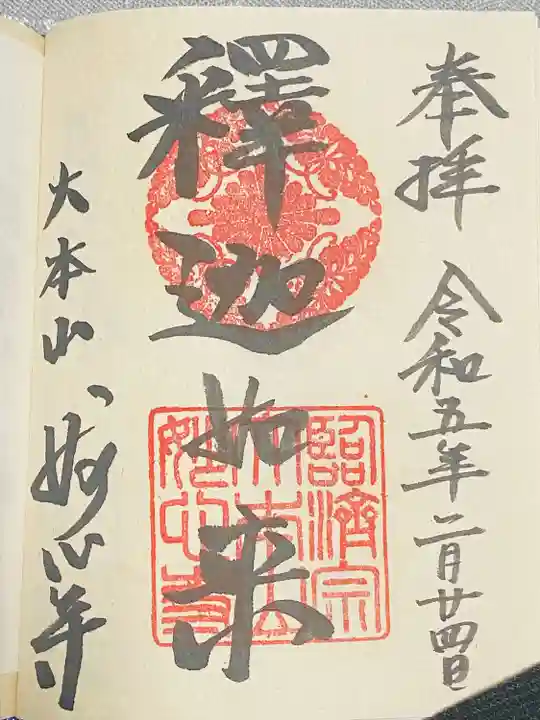 奉拝 令和五年二月廿四日
釋迦如来
臨濟宗
大本山
妙心寺
大本山 妙心寺